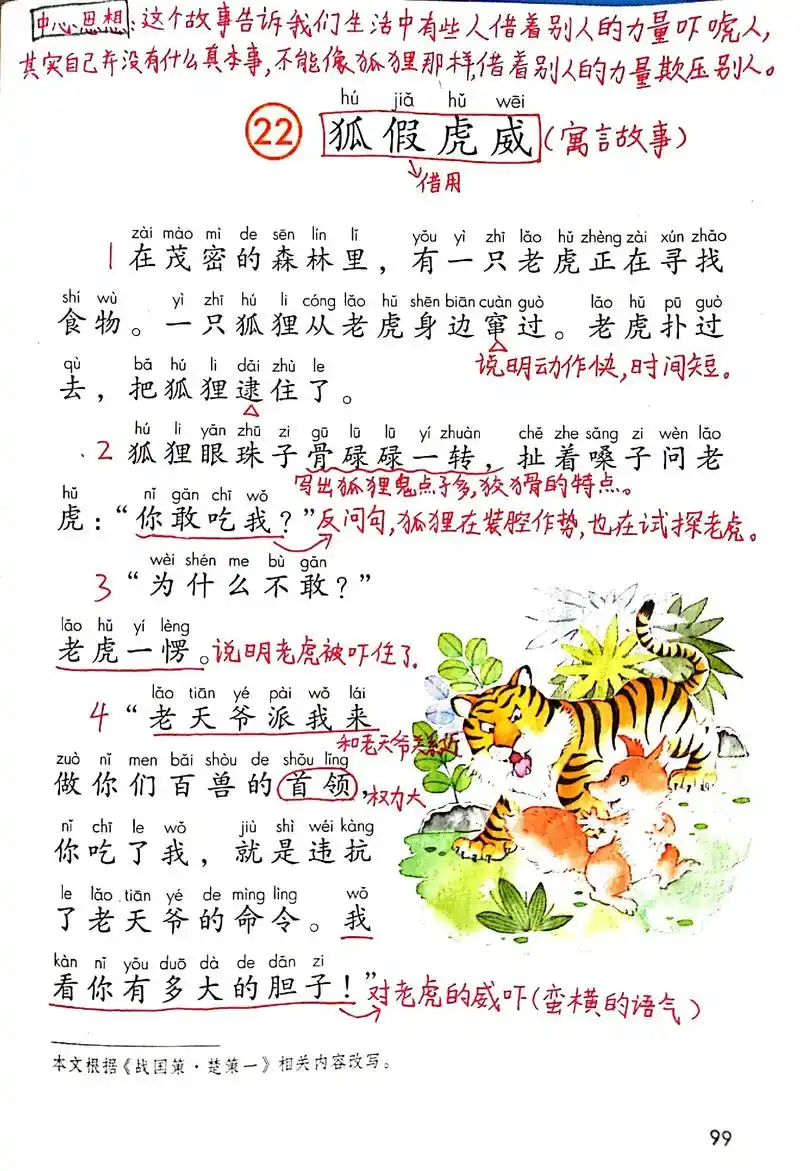 中心思想:这个故事告诉我们生活中有些人借着别人的力量吓唬人,
其实自己并没有什么真本事,不能像狐狸那样,借着别人的力量欺压别人。
hú jiǎ hǔ wēi
22 狐假虎威(寓言故事)
借用
zài mào mì de sēn lín lǐ yǒu yì zhī lǎo hǔ zhèng zài xún zhǎo
1 在茂密的森林里,有一只老虎正在寻找
shí wù yì zhī hú li cóng lǎo hǔ shēn biān cuàn guò lǎo hǔ pū guò
食物。一只狐狸从老虎身边窜过。老虎扑过
说明动作快,时间短。
qù bǎ hú li dǎi zhù le
去,把狐狸逮住了。
hú li yǎn zhū zi gū lū lū yí zhuàn chě zhe sǎng zi wèn lǎo
2 狐狸眼珠子骨碌碌一转,扯着嗓子问老
写出狐狸鬼点子多,狡猾的特点。
hǔ nǐ gǎn chī wǒ
虎:“你敢吃我?”反问句,狐狸在装腔作势,也在试探老虎。
wèi shén me bù gǎn
3 “为什么不敢?”
lǎo hǔ yí lèng
老虎一愣。说明老虎被吓住了.
lǎo tiān yé pài wǒ lái
4 “老天爷派我来
和老天爷关系近
zuò nǐ men bǎi shòu de shǒu lǐng
做你们百兽的首领,权力大
nǐ chī le wǒ jiù shì wéi kàng
你吃了我,就是违抗
le lǎo tiān yé de mìng lìng wǒ
了老天爷的命令。我
kàn nǐ yǒu duō dà de dǎn zi
看你有多大的胆子!”对老虎的威吓(蛮横的语气)
本文根据《战国策·楚策一》相关内容改写。
99